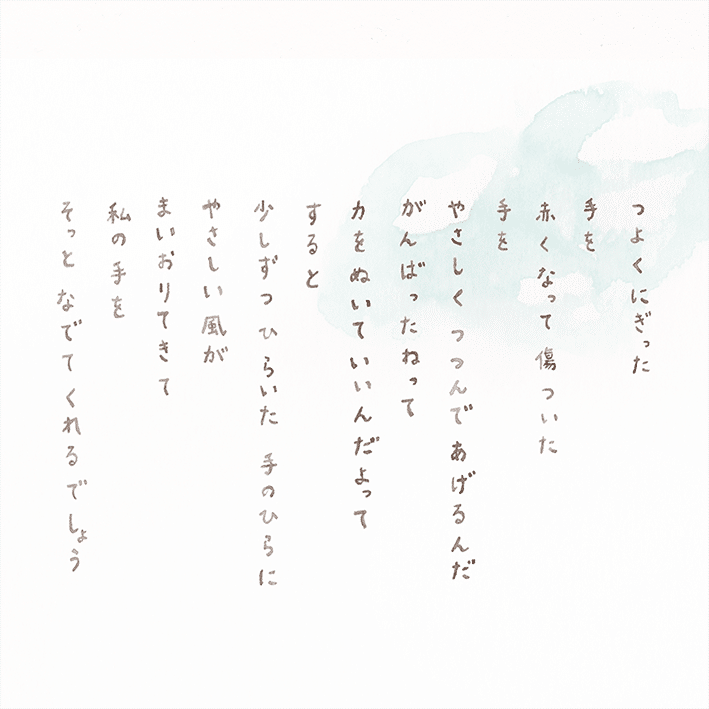 つよくにぎった
手を
赤くなって傷ついた
手を
やさしく つつんであげるんだ
がんばったねって
力をぬいていいんだよって
すると
少しずつ ひらいた 手のひらに
やさしい風が
まいおりてきて
私の手を
そっと なでてくれるでしょう